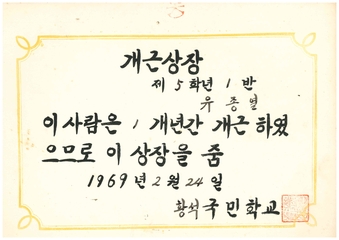 개근상장
제 5 학년 1 반
유 종 열
이 사람은 1 개년간 개근 하였
으므로 이 상장을 줌
1969 년 2 월 24 일
황석 국 민 학 교